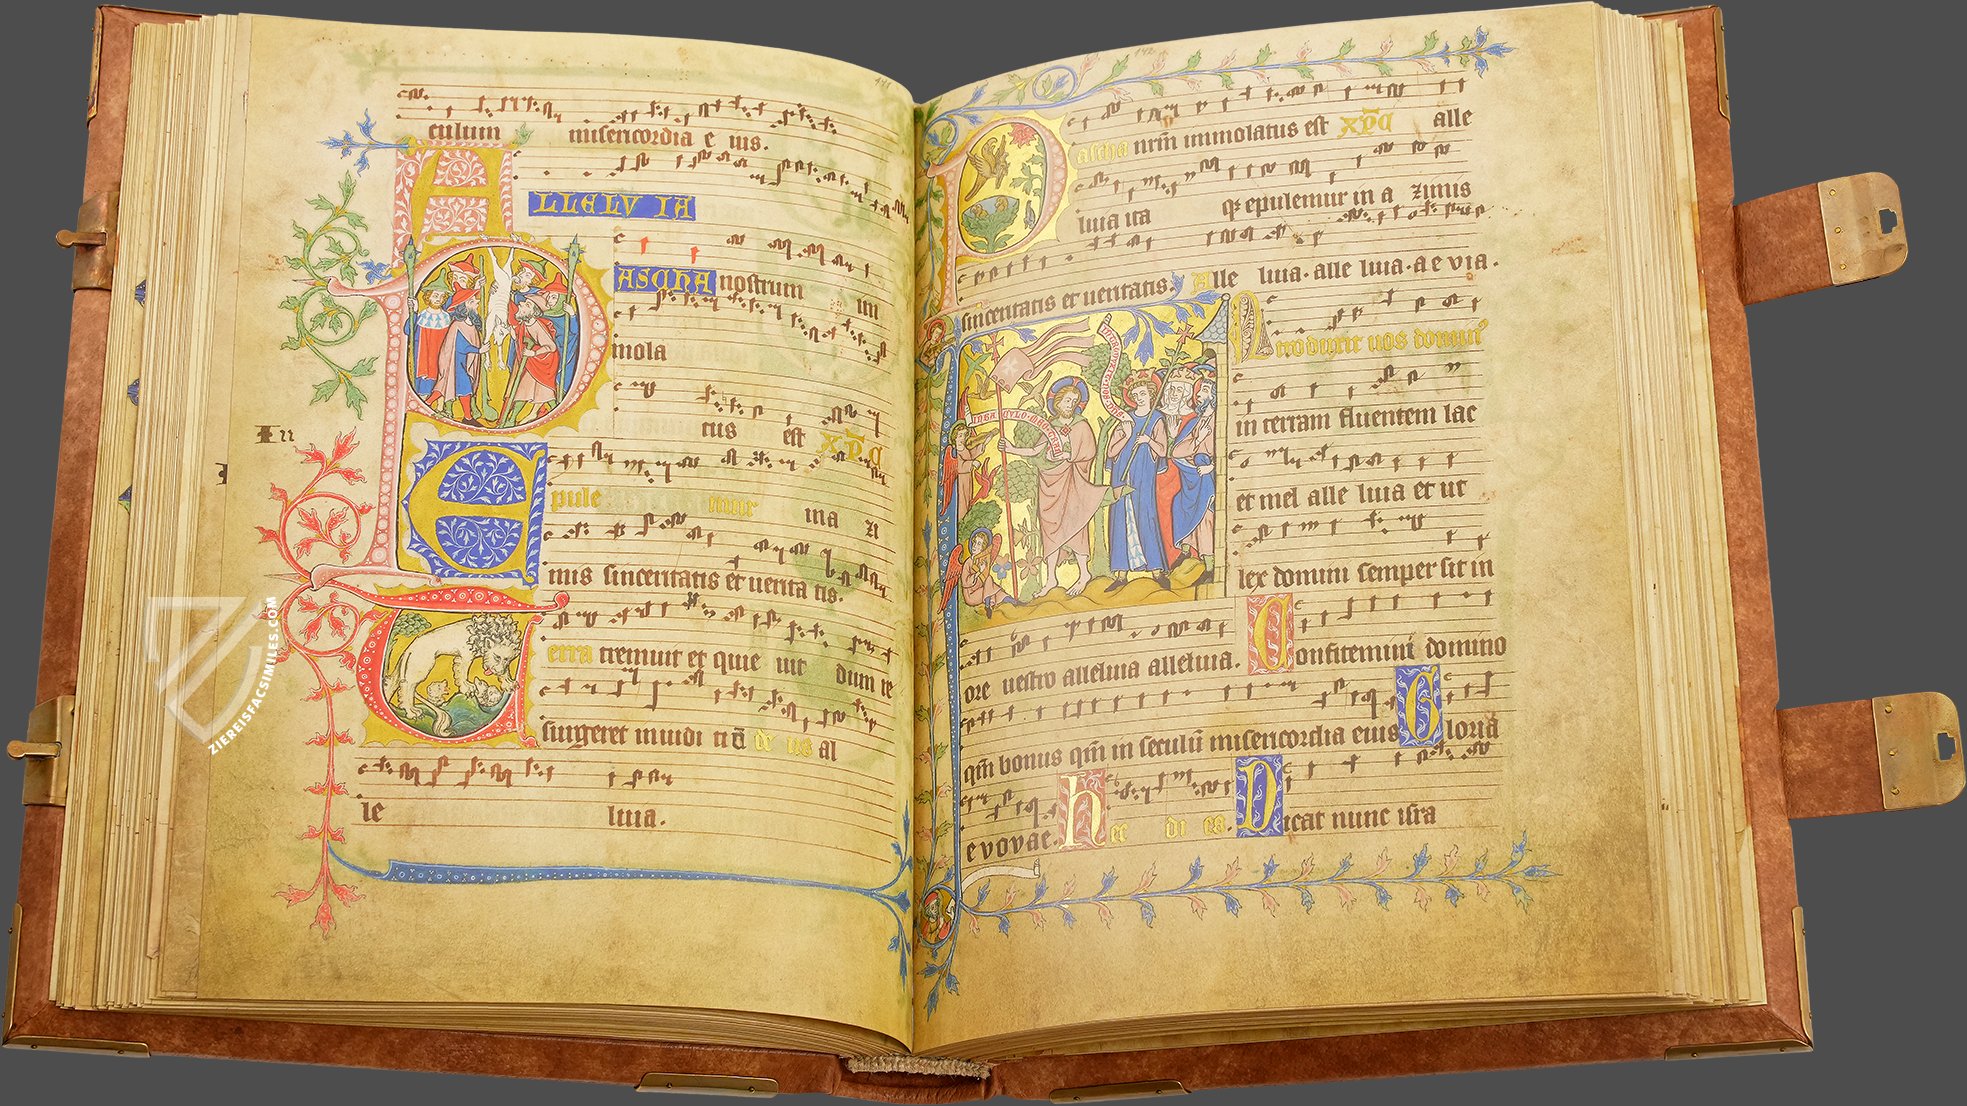 141
culum misericordia e ius.
ALLELV IA
PASCHA nostrum im
mola
tus est xp̅c
In
Epule mur in a zi
mis sinceritatis et uerita tis.
Terra tremuit et quie uit dum re
surgeret in iudi tiū de us al
le luia.
ZIEREISFACSIMILES.COM
142
Pascha nrm̄ immolatus est xp̅c alle
luia ita qꝫ epulemur in a zimis
sinceritatis et ueritatis. Alle luia. alle luia. a e v i a.
Introduxit uos domin᾽
in terram fluentem lac
et mel alle luia et ut
lex domini semper sit in
ore uestro alleluia alleluia. Confitemini domino
qm̄ bonus qm̄ in seculū misericordia eius Gloria
e v o v a e. Hec di es. Dicat nunc isra